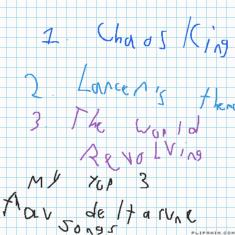 1. Chaos King
2. Lancer's theme
3 The World
Revolving
My top 3
fav deltarune
songs
FLIPANIM.COM